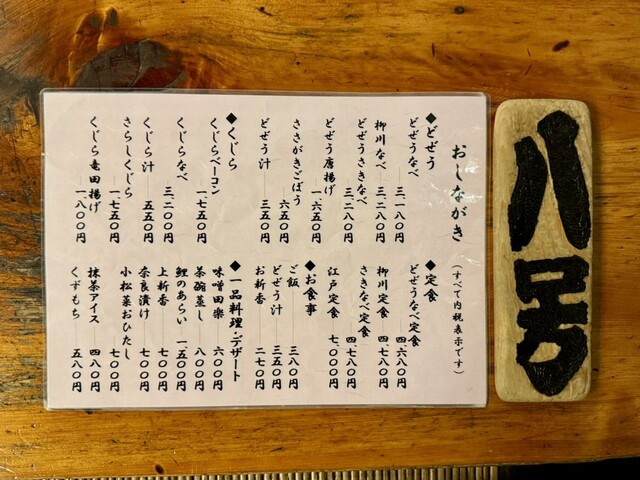 おしながき
(すべて内税表示です)
◆どぜう
どぜうなべ 三、一八〇円
柳川なべ 三、二八〇円
どぜうさきなべ 三、二八〇円
どぜう唐揚げ 一、六五〇円
ささがきごぼう 六五〇円
どぜう汁 三五〇円
◆くじら
くじらベーコン 一、七五〇円
くじらなべ 三、二〇〇円
くじら汁 五五〇円
さらしくじら 一、七五〇円
くじら竜田揚げ 一、八〇〇円
◆定食
どぜうなべ定食 四、六八〇円
柳川定食 四、七八〇円
さきなべ定食 四、七八〇円
江戸定食 七、〇〇〇円
◆お食事
ご飯 三八〇円
どぜう汁 三五〇円
お新香 二七〇円
◆一品料理・デザート
味噌田楽 六〇〇円
茶碗蒸し 八〇〇円
鯉のあらい 一、五〇〇円
上新香 七〇〇円
奈良漬け 七〇〇円
小松菜おひたし 七〇〇円
抹茶アイス 四八〇円
くずもち 五八〇円
八号